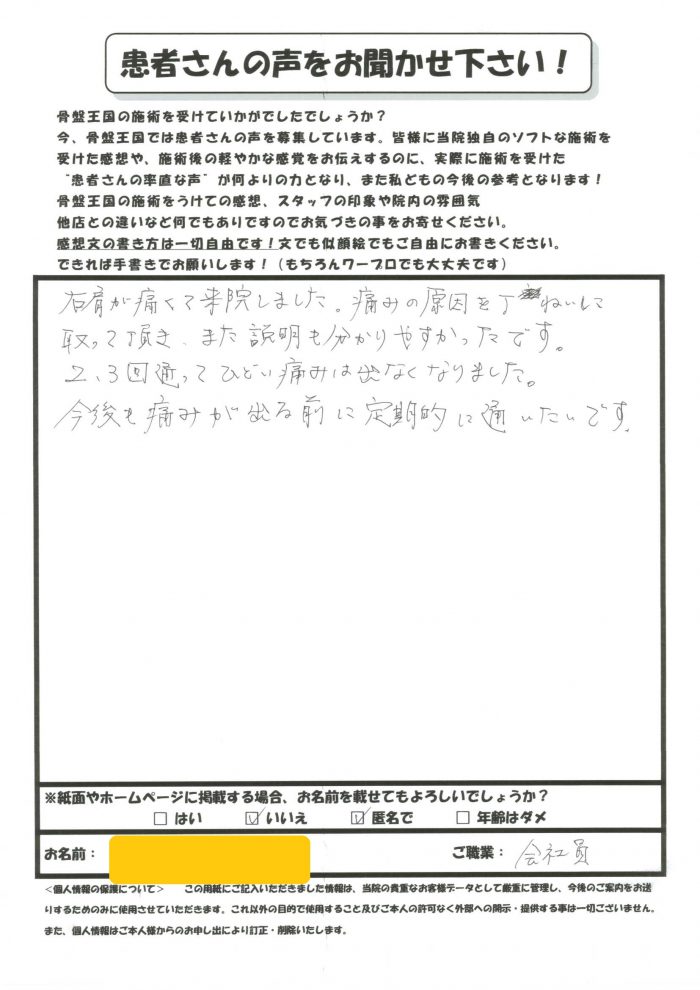 患者さんの声をお聞かせ下さい！
骨盤王国の施術を受けていかがでしたでしょうか？
今、骨盤王国では患者さんの声を募集しています。皆様に当院独自のソフトな施術を
受けた感想や、施術後の軽やかな感覚をお伝えするのに、実際に施術を受けた
“患者さんの率直な声”が何よりの力となり、また私どもの今後の参考となります！
骨盤王国の施術をうけての感想、スタッフの印象や院内の雰囲気
他店との違いなど何でもありですのでお気づきの事をお寄せください。
感想文の書き方は一切自由です！文でも似顔絵でもご自由にお書きください。
できれば手書きでお願いします！（もちろんワープロでも大丈夫です）
右肩が痛くて来院しました。痛みの原因を丁ねいに
取って頂き、また説明も分かりやすかったです。
2、3回通ってひどい痛みは出なくなりました。
今後も痛みが出る前に定期的に通いたいです。
※紙面やホームページに掲載する場合、お名前を載せてもよろしいでしょうか？
□ はい ☑ いいえ ☑ 匿名で □ 年齢はダメ
お名前： ご職業： 会社員
＜個人情報の保護について＞ この用紙にご記入いただきました情報は、当院の貴重なお客様データとして厳重に管理し、今後のご案内をお送
りするためのみに使用させていただきます。これ以外の目的で使用すること及びご本人の許可なく外部への開示・提供する事は一切ございません。
また、個人情報はご本人様からのお申し出により訂正・削除いたします。